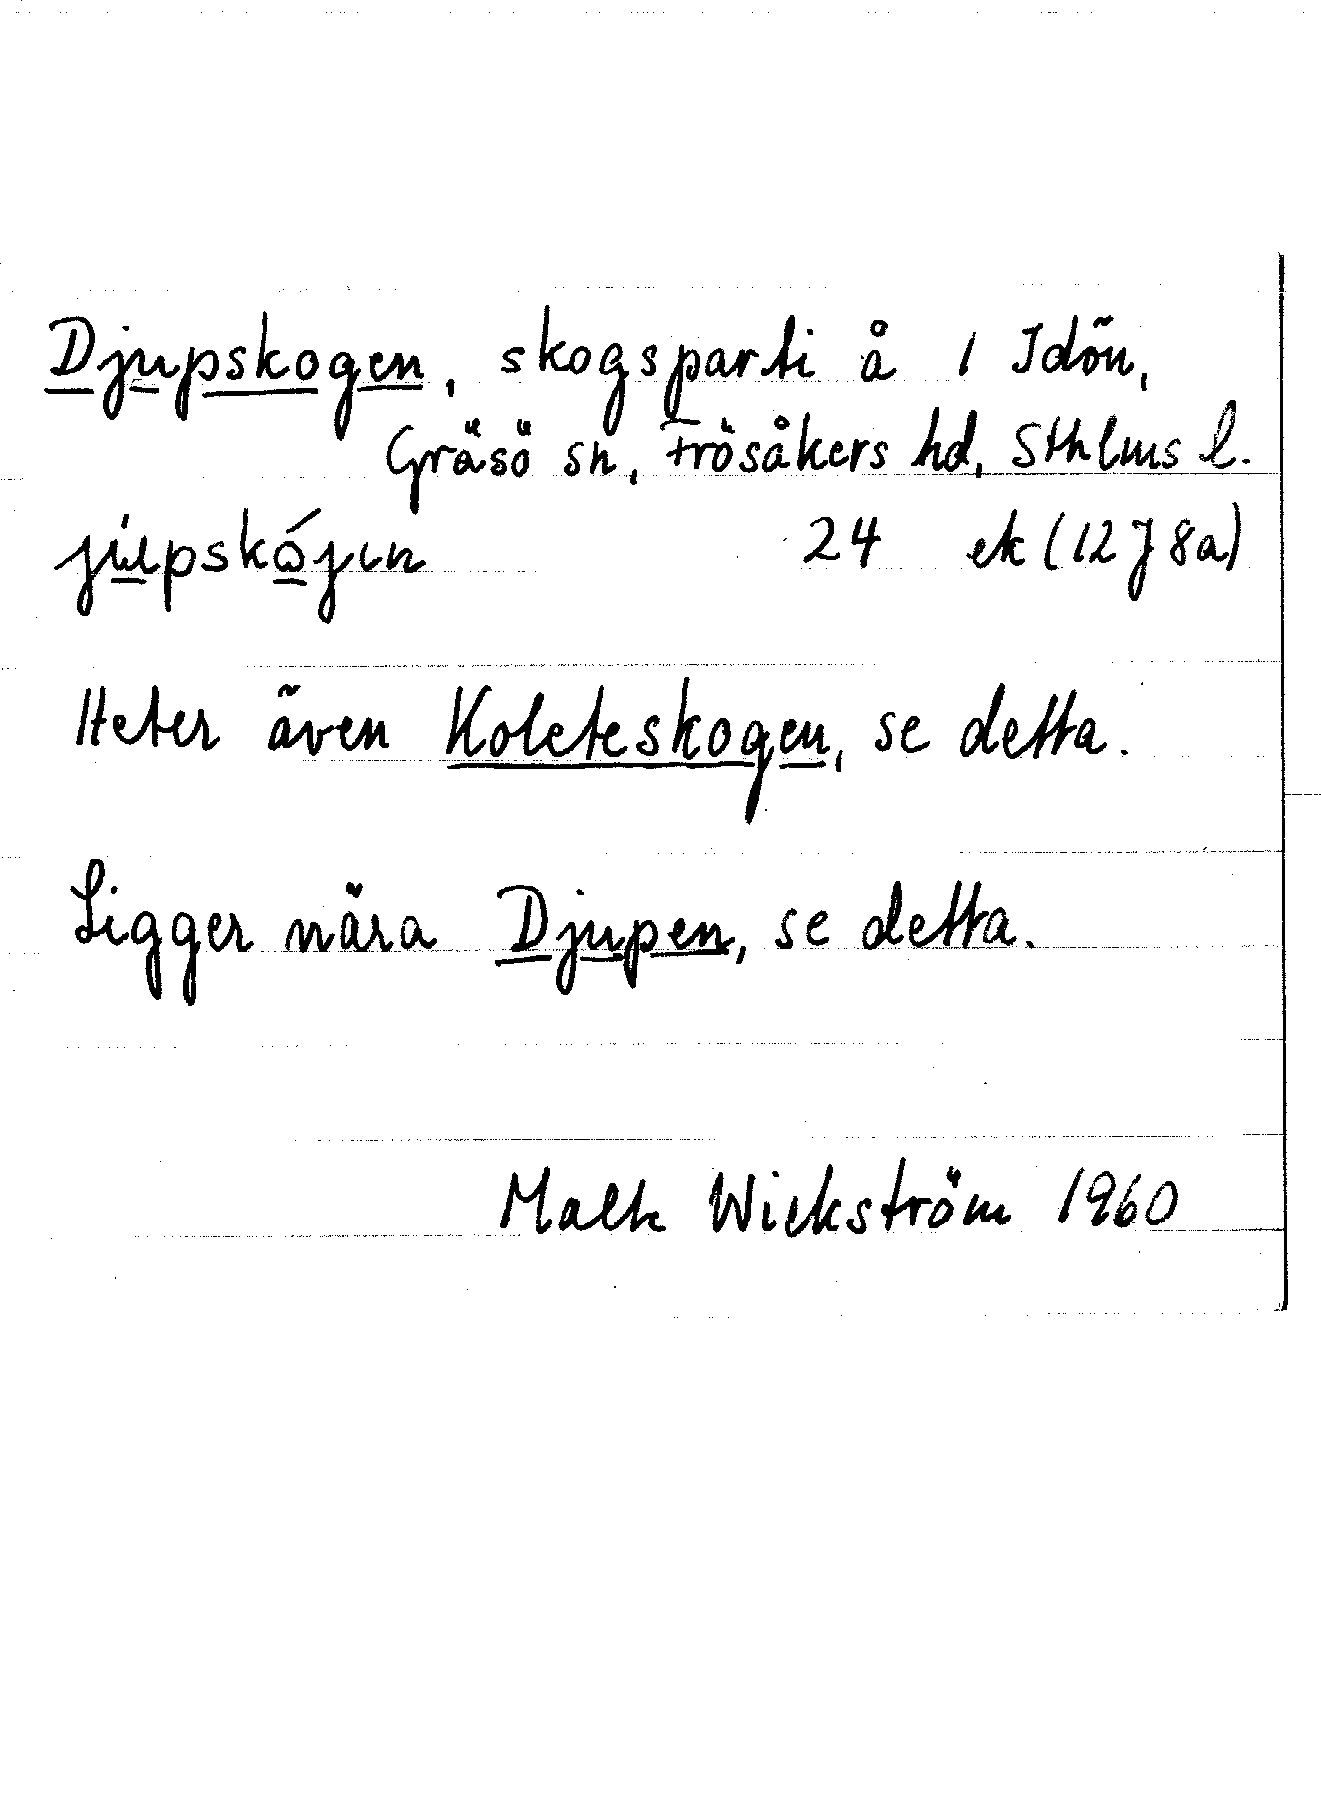 Djupskogen, skogsparti å 1 Idön,
Gräsö sn, Frösåkers hd, Sthlms l.
24 ek (12J8a)
Heter även Koleteskogen, se detta.
Ligger nära Djupen, se detta.
Wickström 1960